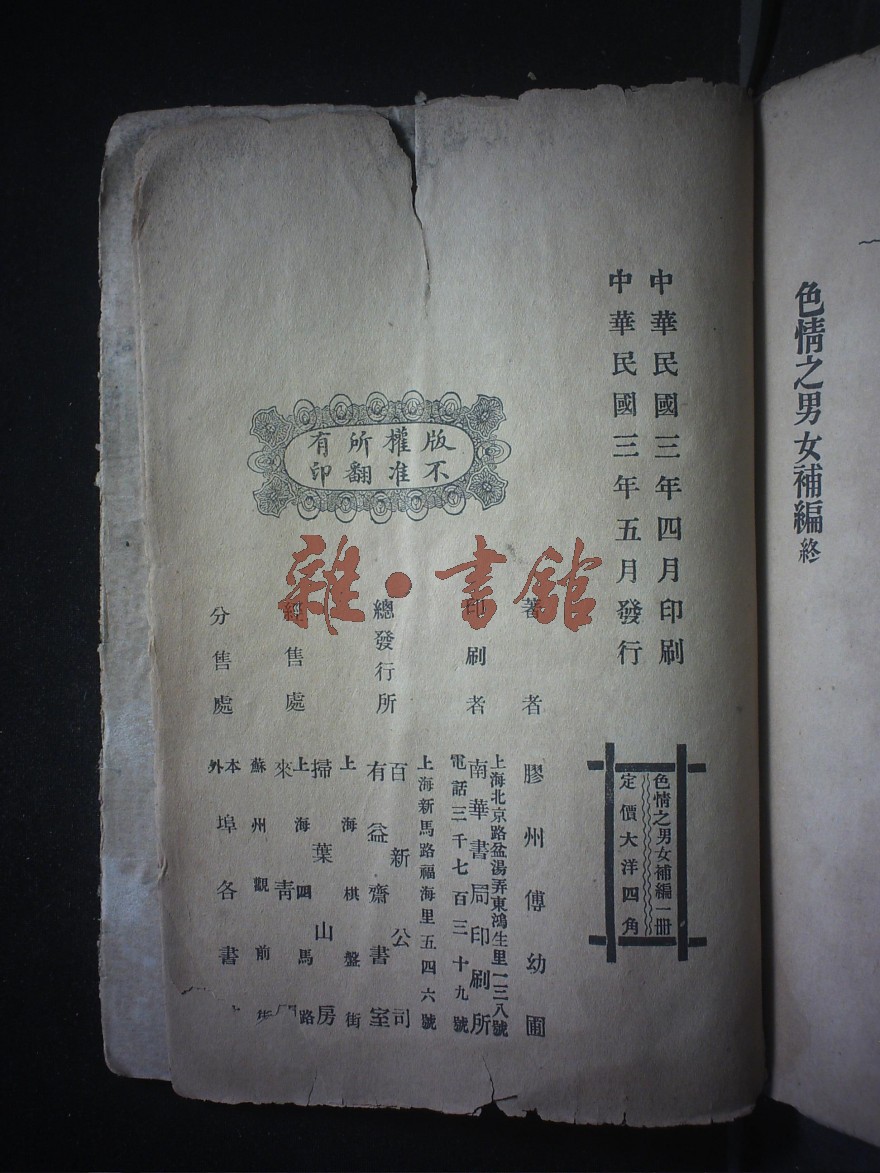 色情之男女補編終
中華民國三年四月印刷
中華民國三年五月發行
版權所有
不准翻印
色情之男女補編一冊
定價大洋四角
著者
膠州傅幼圃
印刷者
上海北京路盆湯弄東鴻生里一三八號
南華書局印刷所
電話三千七百三十九號
總發行所
上海新馬路福海里五四六號
百新公司
有益齋書室
上海棋盤街
經售處
掃葉山房
上海四馬路
來青
蘇州觀前
分售處
本外埠各書
雜·書館